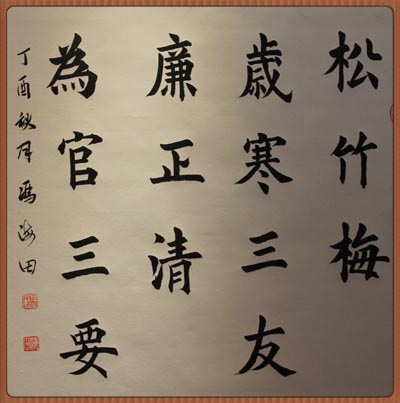 松竹梅
歲寒三友
廉正清
為官三要
丁酉秋月馮海田